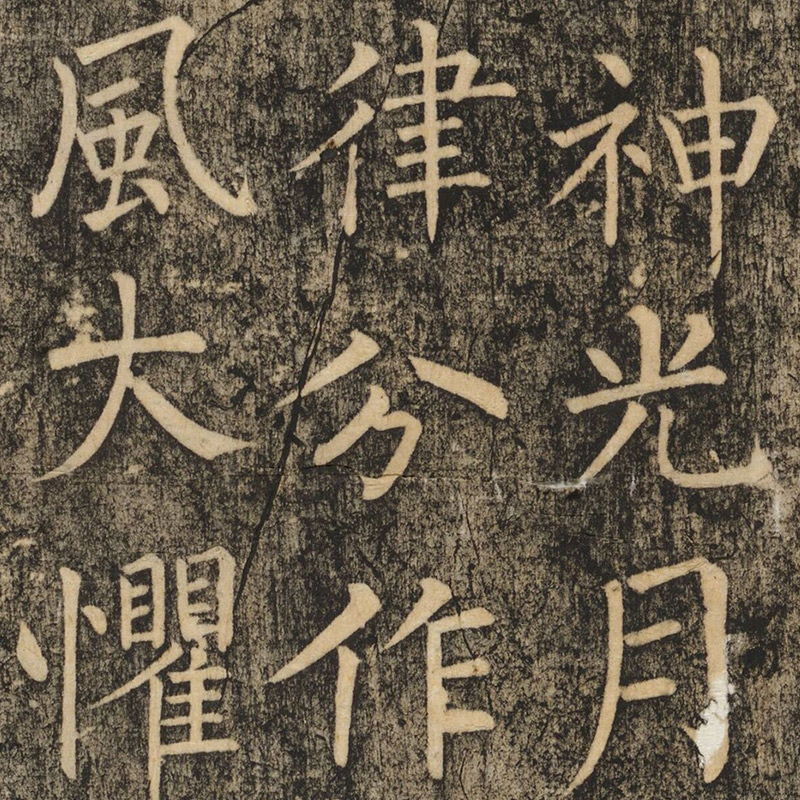 神光月
律分作
風大懼